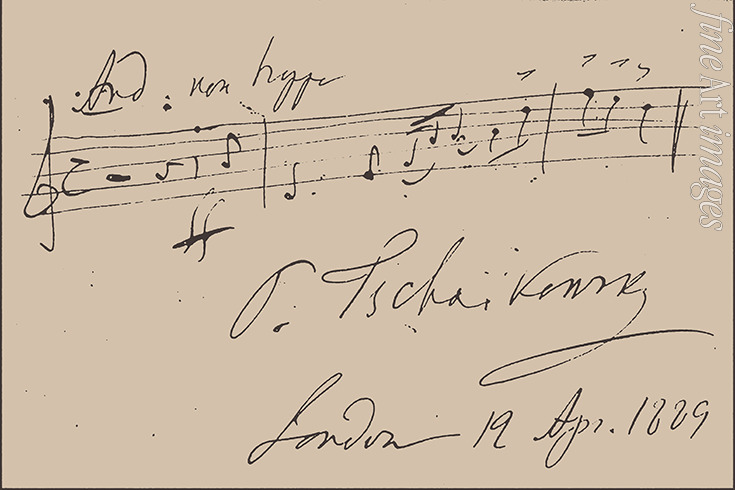 And: non troppo
ff
P. Tschaïkowsky
London 12 Apr. 1889
fine art images